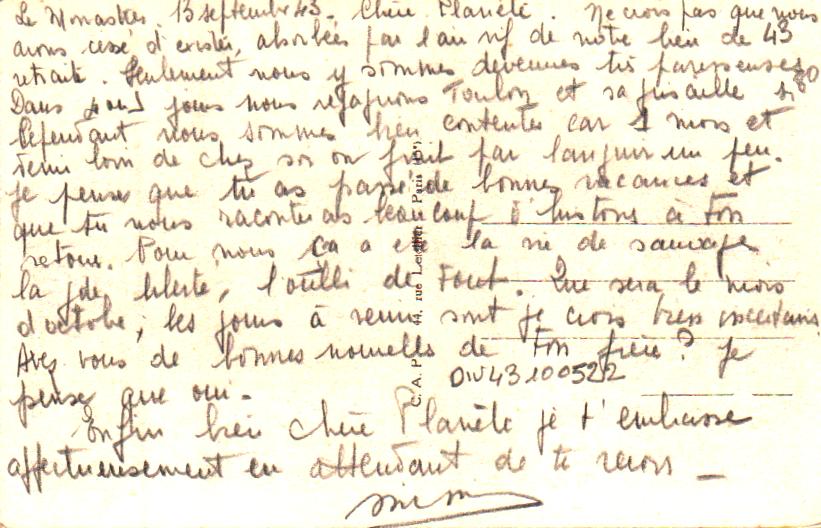 Le Monastier. 13 septembre 43. Chère Planète. Ne crois pas que nous
avons cessé d'exister, absorbées par l'air vif de notre lieu de 43
retraite. Seulement nous y sommes devenues très paresseuses
Dans jours nous regagnons Toulon et sa 80
Cependant nous sommes bien contentes car 1 mois et
demi loin de chez soi on finit par languir un peu.
Je pense que tu as passé de bonnes vacances et
que tu nous raconteras beaucoup d'histoires à ton
retour. Pour nous ça a été la vie de sauvage
la gde liberté, l'oubli de tout. Que sera le mois
d'octobre, les jours à venir sont je crois bien incertains
Avez vous de bonnes nouvelles de ton frère? Je
pense que oui.
DIV43100522
Enfin bien chère Planète je t'embrasse
affectueusement en attendant de te revoir _
C.A.P. 44, rue Letellier Paris (15e)